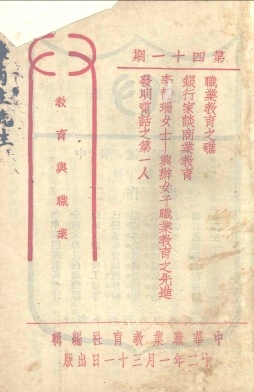 第四十一期
職業教育之礁
銀行家談商業教育
李珊女士—興辦女子職業教育之先進
發明電話之第一人
教育與職業
中華職業教育社編輯
十二年一月三十一日出版
先生